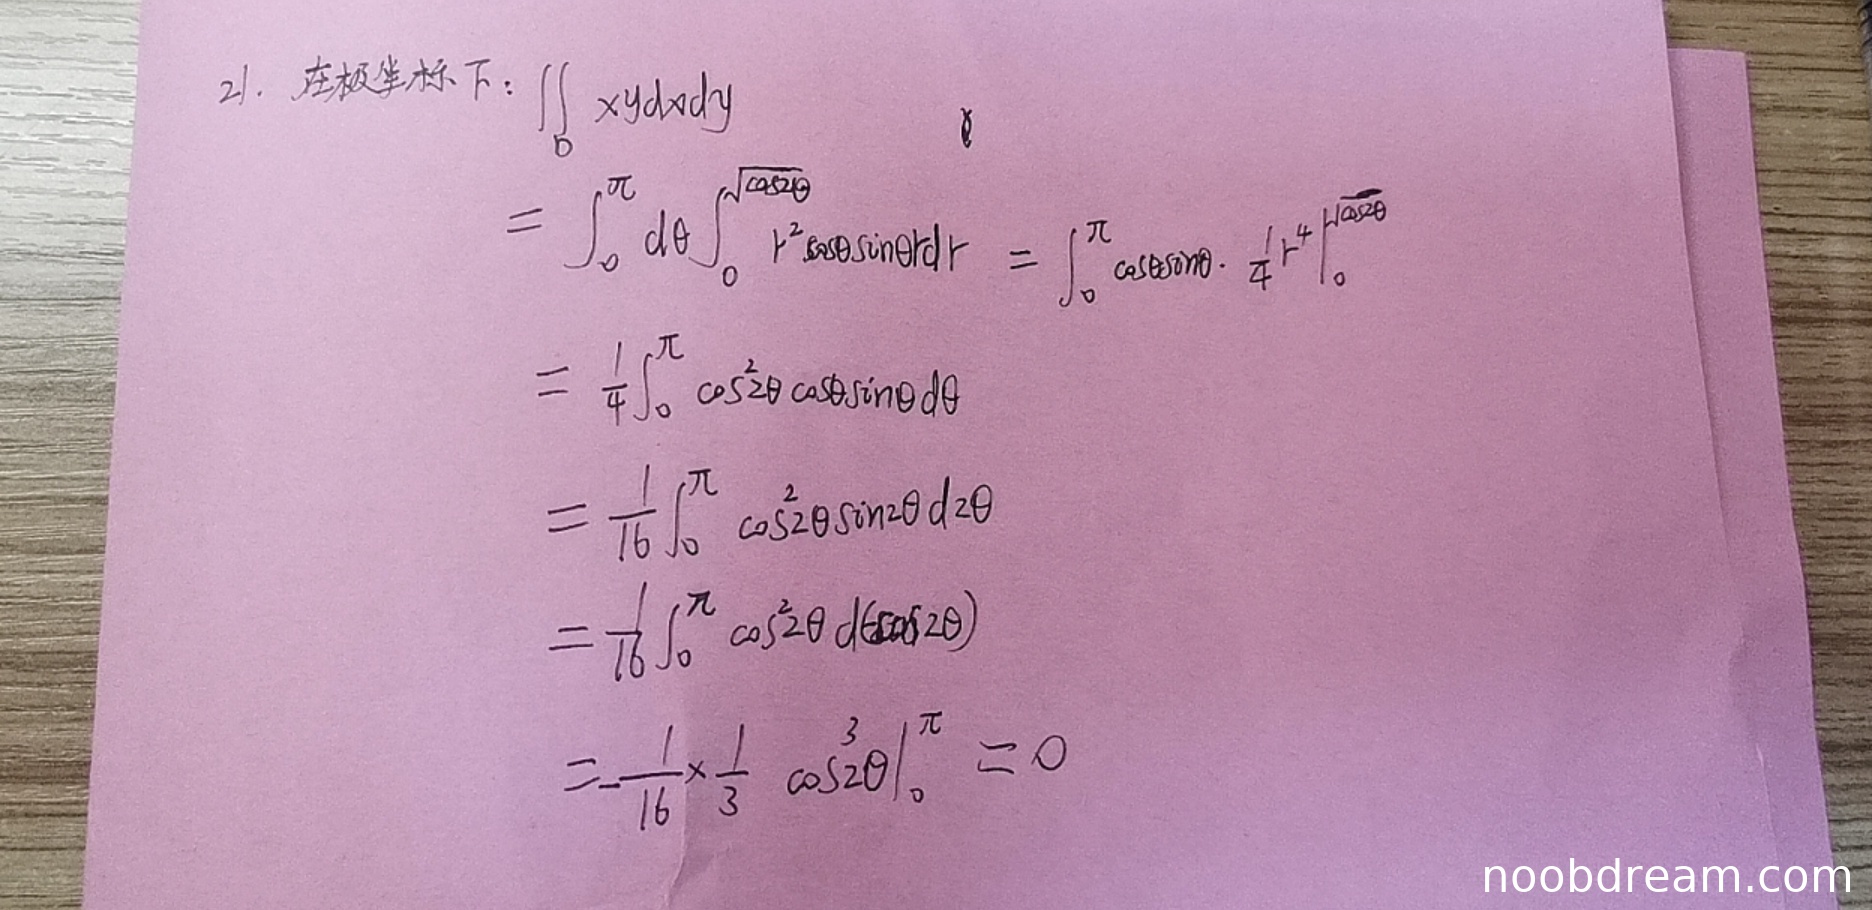 21. 在极坐标下: ∬_D xydxdy
= ∫_0^π dθ ∫_0^√cos2θ r² cosθ sinθ r dr = ∫_0^π cosθ sinθ · 1/4 r⁴ |_0^√cos2θ
= 1/4 ∫_0^π cos²2θ cosθ sinθ dθ
= 1/16 ∫_0^π cos²2θ sin2θ d2θ
= 1/16 ∫_0^π cos²2θ d(-cos2θ)
= -1/16 × 1/3 cos³2θ |_0^π = 0
noobdream.com